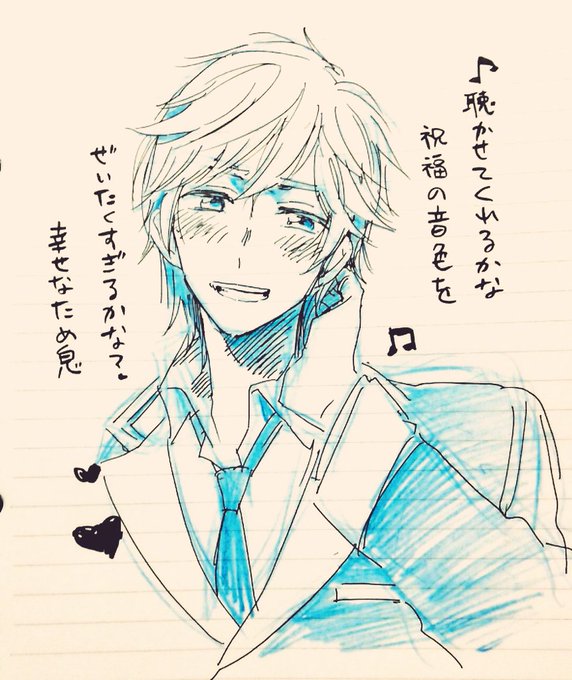 ♪聴かせてくれるかな
祝福の音色を♫
ぜいたくすぎるかな?
幸せなため息